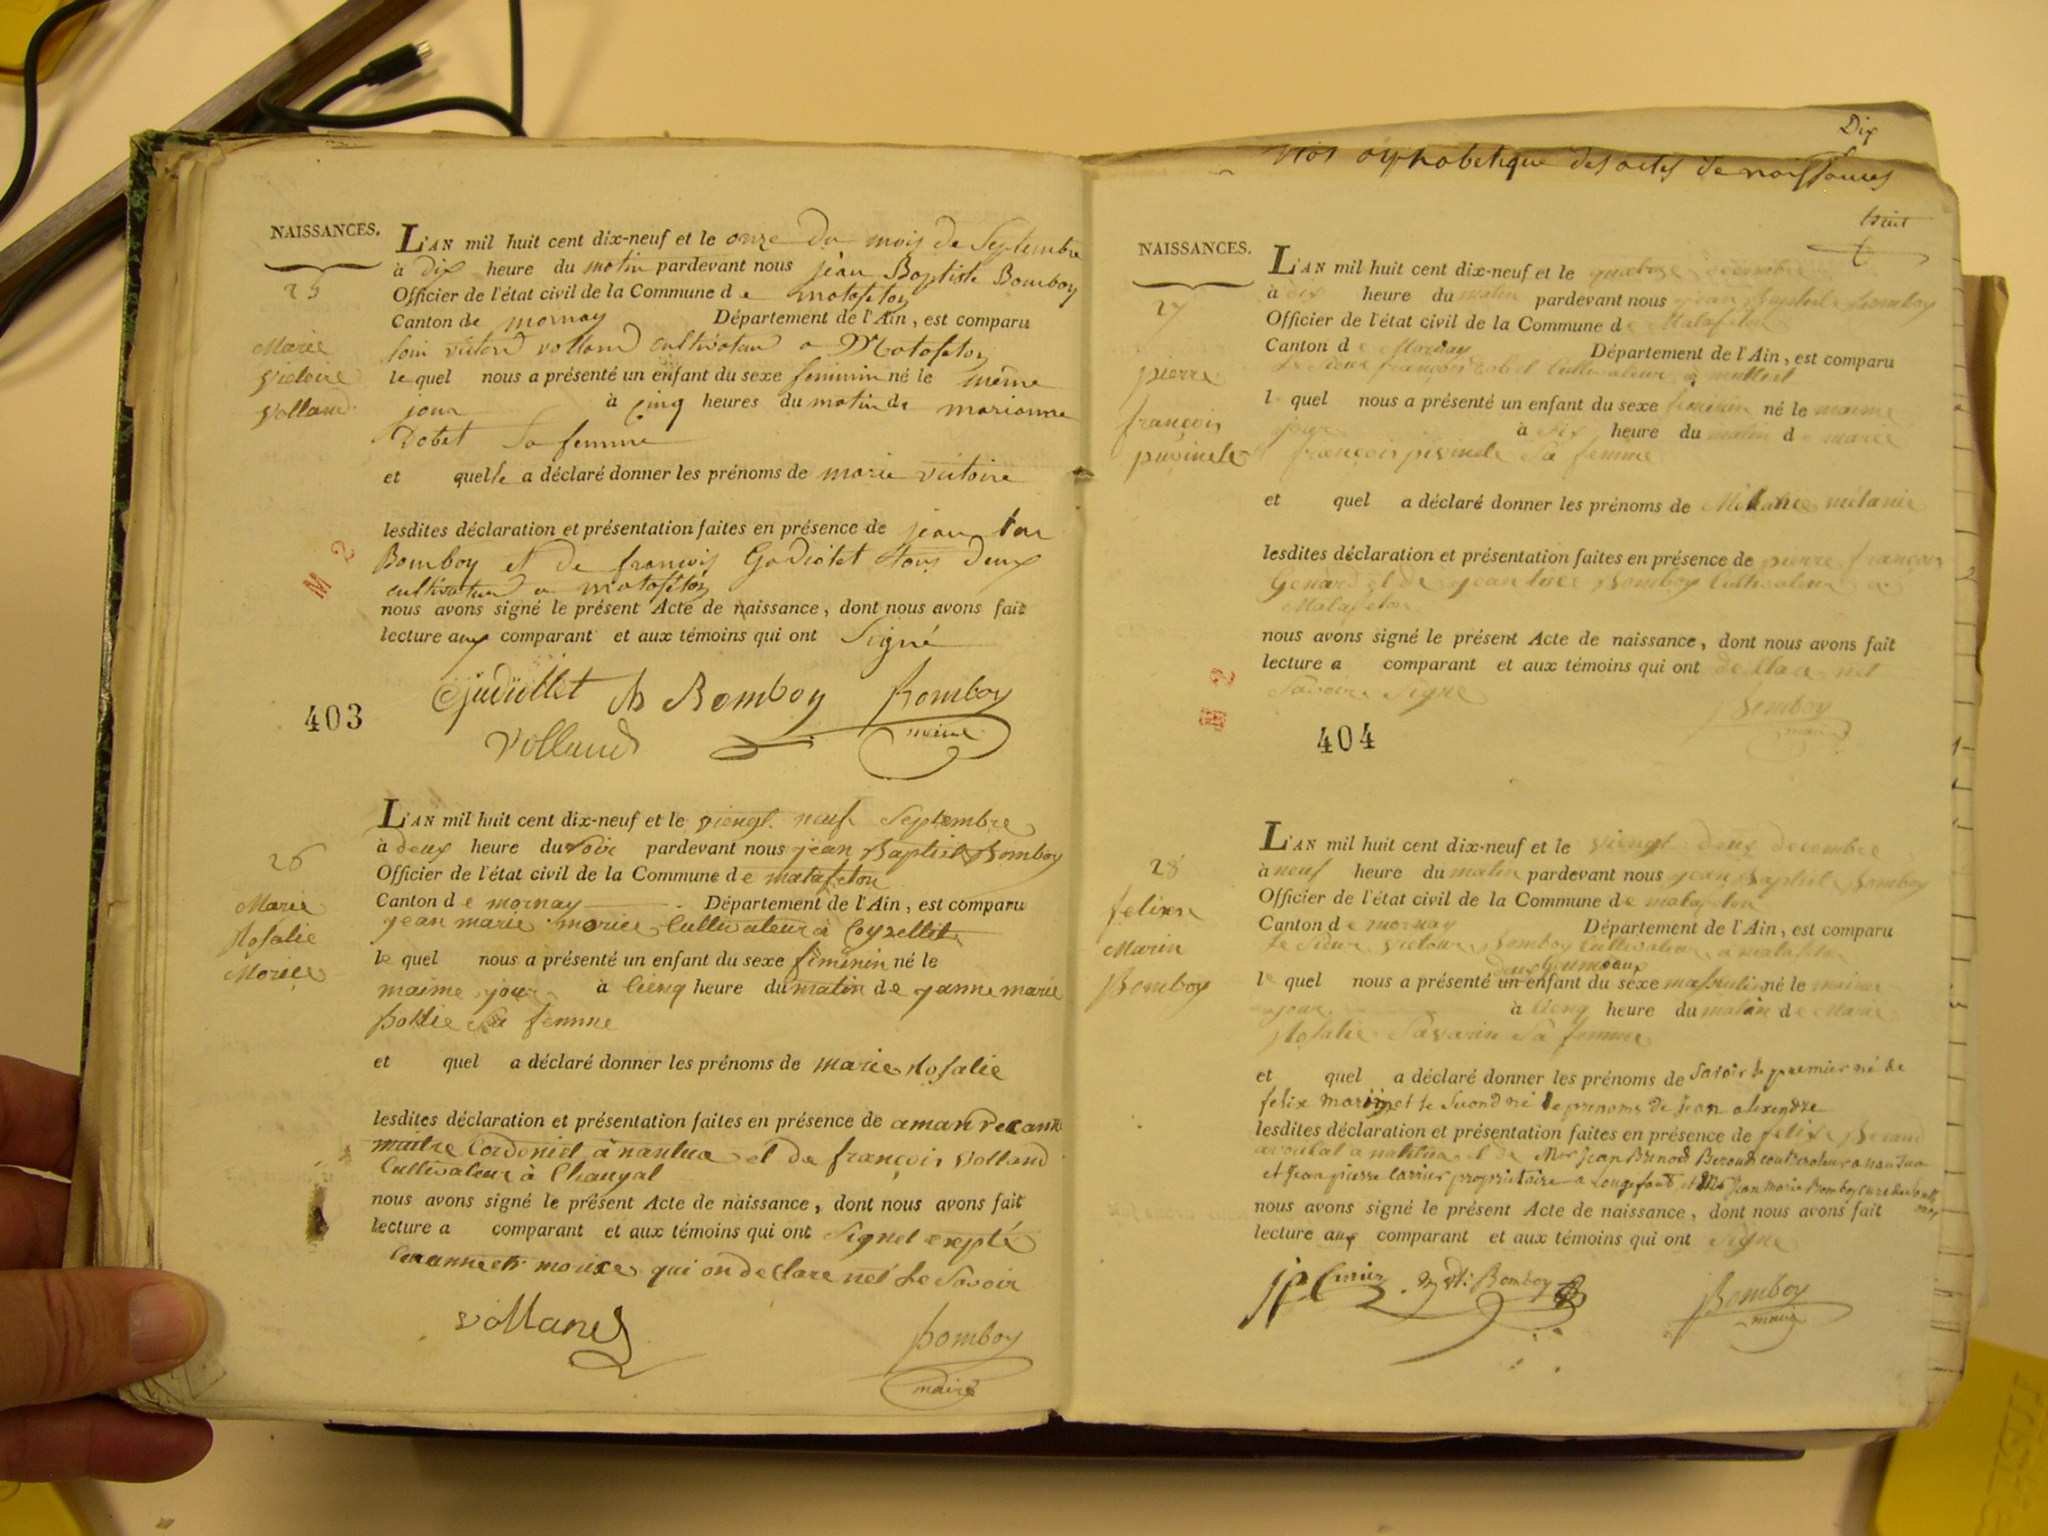 NAISSANCES.
L'AN mil huit cent dix-neuf et le onze du mois de Septembre
à dix heure du matin pardevant nous jean Baptiste Bomboy
Officier de l'état civil de la Commune de matafelon
Canton de mornay Département de l'Ain, est comparu
volland cultivateur a Matafelon
25
Marie
Victoire
Volland
lequel nous a présenté un enfant du sexe feminin né le même
jour à Cinq heures du matin de marianne
Sa femme
et quelle a déclaré donner les prénoms de marie victoire
lesdites déclaration et présentation faites en présence de jean luc
Bomboy et de francois Godiolet tous deux
cultivateur a matafelon
nous avons signé le présent Acte de naissance, dont nous avons fait
lecture aux comparant et aux témoins qui ont Signé
M 2
403
Bomboy Bomboy
maire
Volland
L'AN mil huit cent dix-neuf et le viengt neuf Septembre
à deux heure du soir pardevant nous jean Baptiste Bomboy
Officier de l'état civil de la Commune de matafelon
Canton de mornay Département de l'Ain, est comparu
jean marie morice Cultivateur à
26
Marie
Rosalie
Morice
le quel nous a présenté un enfant du sexe féminin né le
maime jour à Cienq heure du matin de janne marie
sa femme
et quel a déclaré donner les prénoms de marie Rosalie
lesdites déclaration et présentation faites en présence de
maitre Cordoniel à nantua et de françois Volland
Cultivateur à Changal
nous avons signé le présent Acte de naissance, dont nous avons fait
lecture a comparant et aux témoins qui ont Signet exepté
qui on declare net le Savoir
Volland
Bomboy
maire
Dix
alphabetique des actes de naissances
huit
NAISSANCES.
L'AN mil huit cent dix-neuf et le
à dix heure du matin pardevant nous jean Baptiste Bomboy
Officier de l'état civil de la Commune de Matafelon
Canton de Mornay Département de l'Ain, est comparu
Le Sieur françois Cultivateur a
27
pierre
françois
l quel nous a présenté un enfant du sexe féminin né le maime
jour à dix heure du matin de marie
sa femme
et quel a déclaré donner les prénoms de mélanie
lesdites déclaration et présentation faites en présence de pierre françois
et de jean luc Bomboy Cultivateur a
Matafelon
nous avons signé le présent Acte de naissance, dont nous avons fait
lecture a comparant et aux témoins qui ont declare net
Savoir Signe
2
404
Bomboy
maire
L'AN mil huit cent dix-neuf et le viengt deux decembre
à neuf heure du matin pardevant nous jean Baptiste Bomboy
Officier de l'état civil de la Commune de matafelon
Canton de mornay Département de l'Ain, est comparu
Le Sieur Victour Bomboy Cultivateur a matafelon
28
felixe
Marin
Bomboy
deux Gumeaux
le quel nous a présenté un enfant du sexe masculin né le maime
jour à Cienq heure du matin de Marie
Rosalie Savarin Sa femme
et quel a déclaré donner les prénoms de Savoir le premier né de
felix marin et le Second né le prenoms de jean alexendre
lesdites déclaration et présentation faites en présence de felix Beraud
avoucat a nantua et de Mr jean Beroud a nantua
et Jean pierre Carrier proprietaire a Longefont et Mr Jean Marie Bomboy curé
nous avons signé le présent Acte de naissance, dont nous avons fait
lecture aux comparant et aux témoins qui ont Signe
JP Carrier Bomboy Bomboy
maire